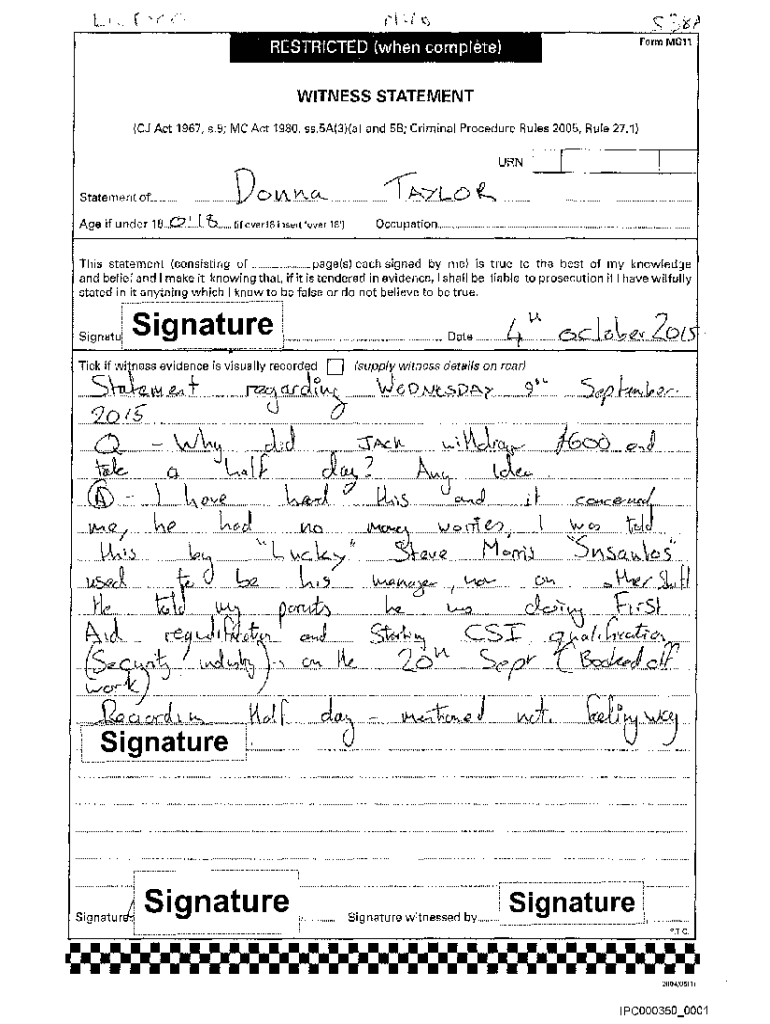 S38A
RESTRICTED (when complete)
Form MG11
WITNESS STATEMENT
(CJ Act 1967, s.9; MC Act 1980, ss.5A(3)(a) and 5B; Criminal Procedure Rules 2005, Rule 27.1)
URN
Statement of Donna TAYLOR
Age if under 18 O'18 (if over 18 insert 'over 18') Occupation
This statement (consisting of page(s) each signed by me) is true to the best of my knowledge
and belief and I make it knowing that, if it is tendered in evidence, I shall be liable to prosecution if I have wilfully
stated in it anything which I know to be false or do not believe to be true.
Signatu Signature Date 4th october 2015
Tick if witness evidence is visually recorded (supply witness details on rear)
Statement regarding WEDNESDAY 9th September
2015
Q - Why did JACK withdraw £600 and
take a half day? Any idea
A - I have heard this and it concerned
me, he had no money worries, I was told
this by "Lucky" Steve Morris
used to be his manager, now on other shift
He told my parents he was doing First
Aid and Starting CSI qualification
(Security industry) on the 20th Sept (Booked off
work)
Regarding Half day - mentioned not feeling
Signature
Signature Signature Signature witnessed by Signature
P.T.O.
2004/05(1)
IPC000350_0001